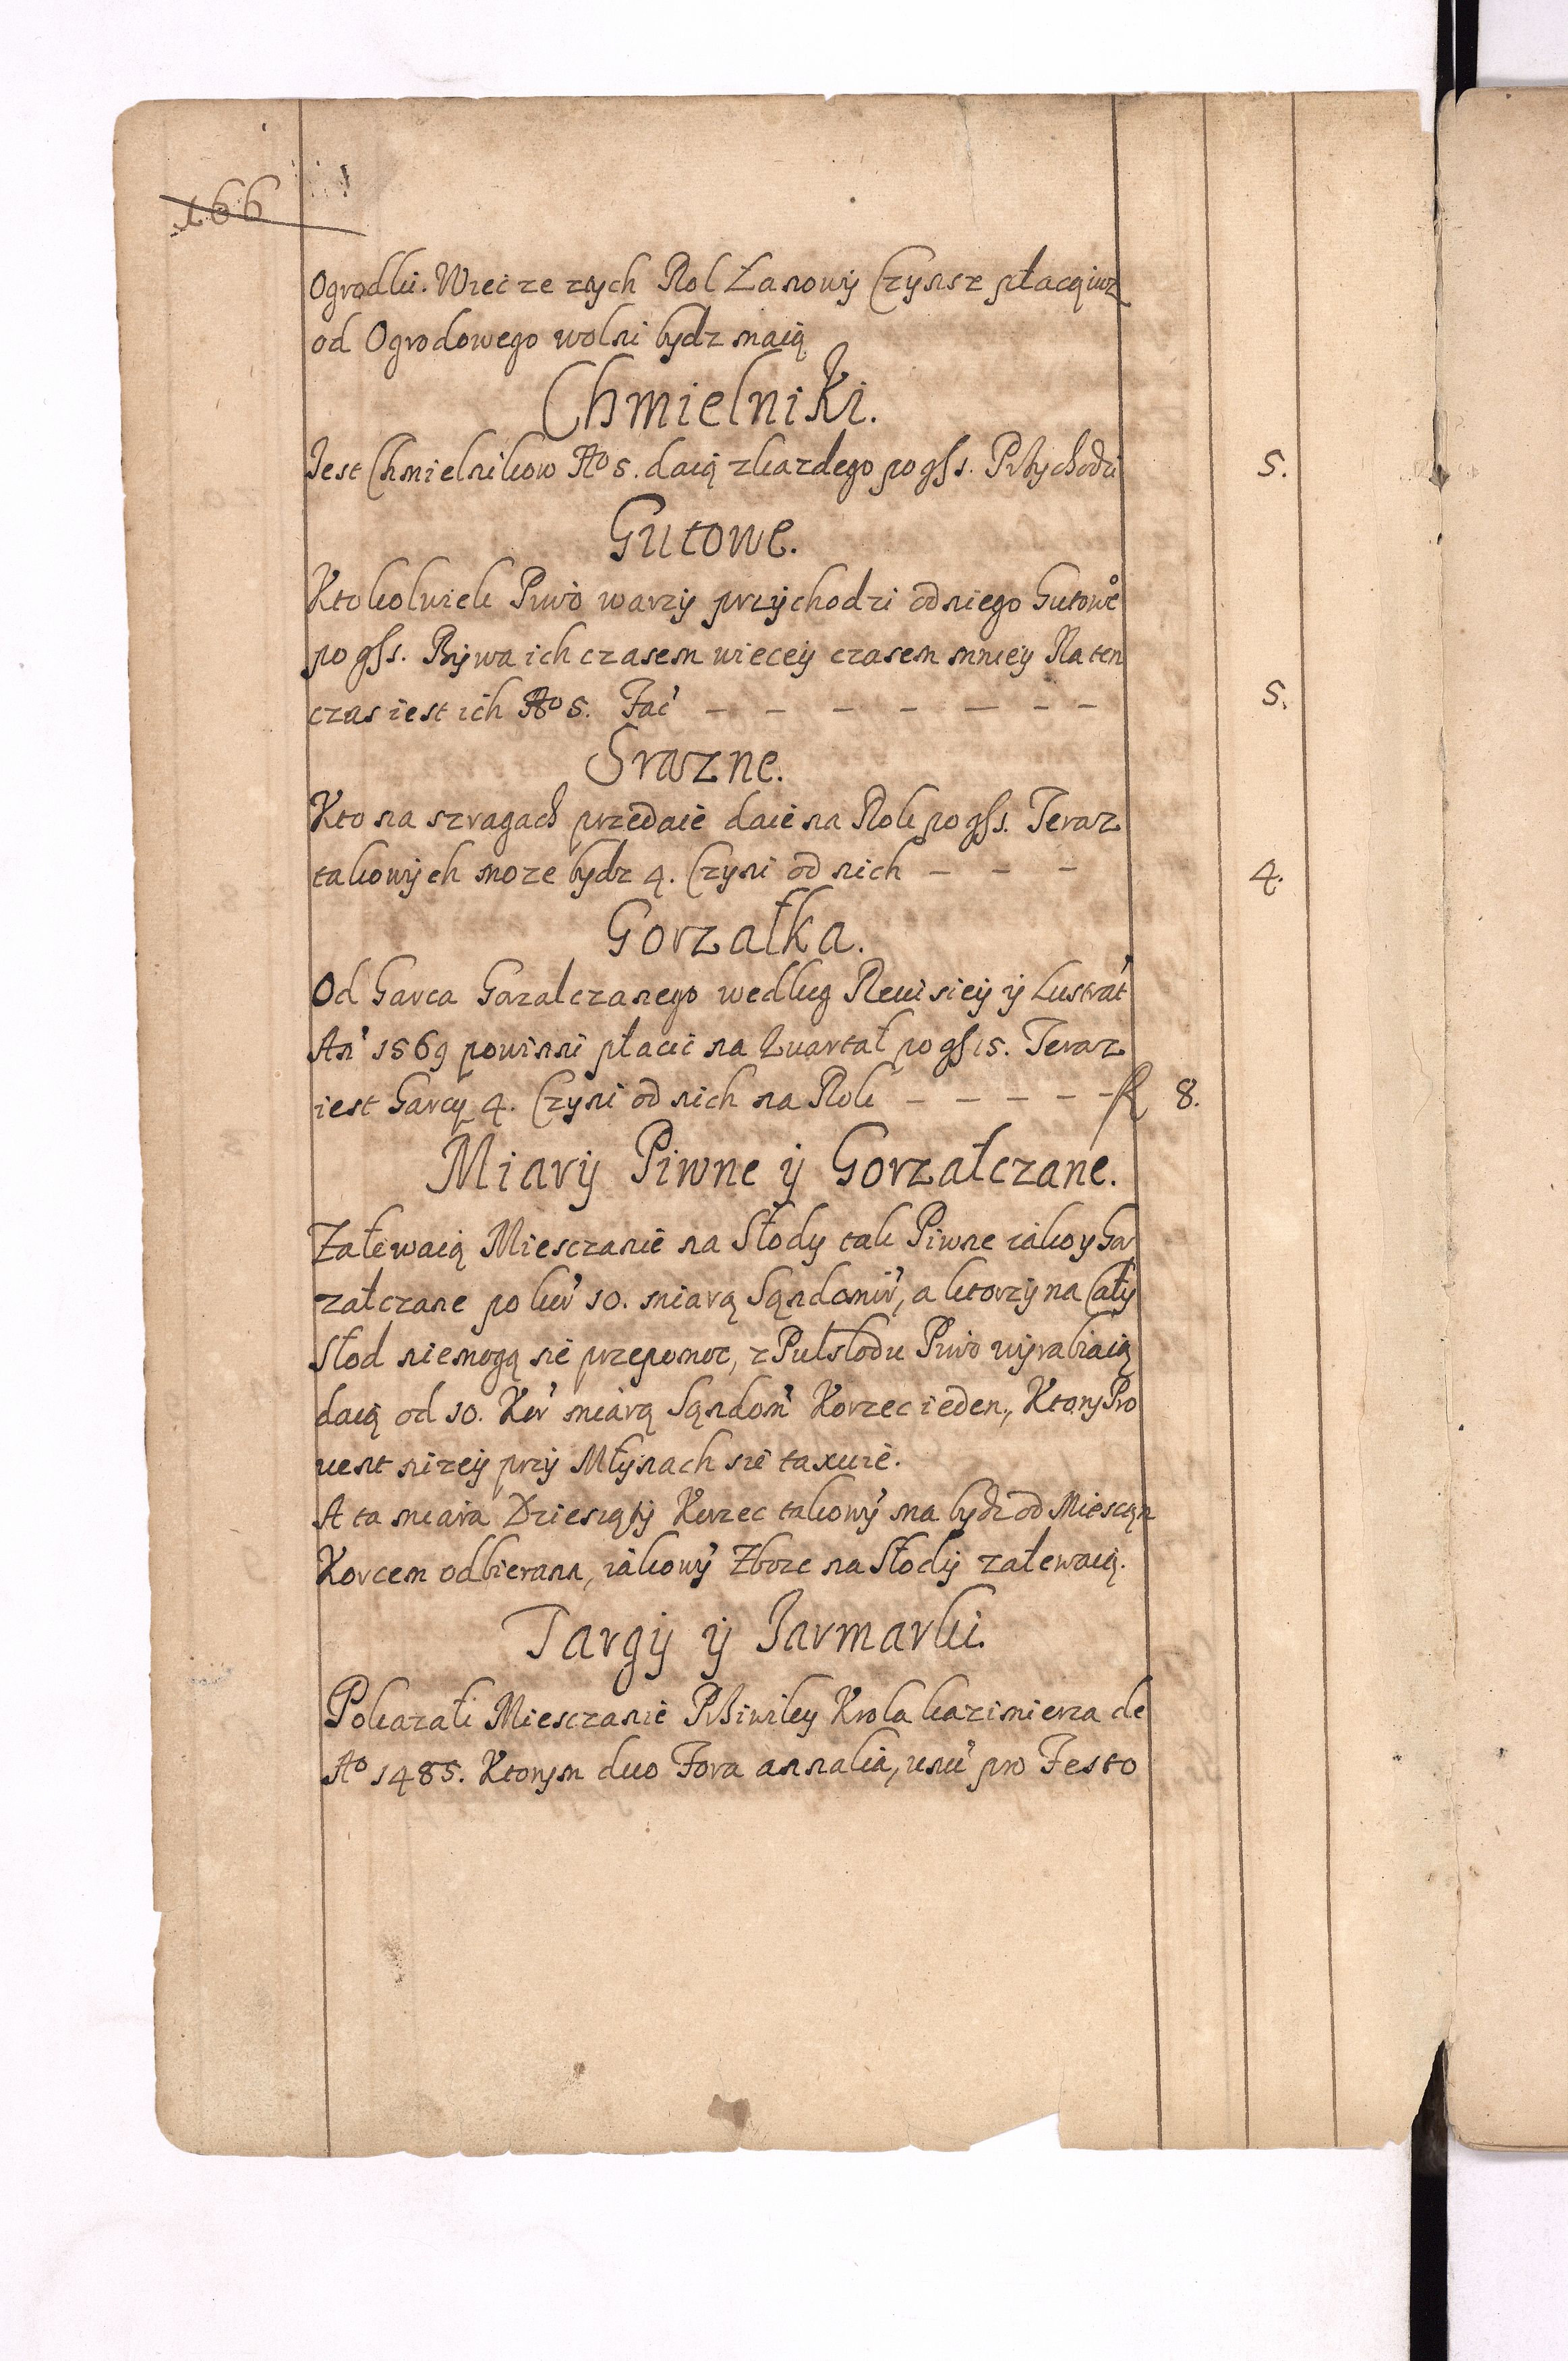 166
Ogrodki. Wiec ze z tych Rol Łanowy Czynsz płacą iuz
od Ogrodowego wolni bydz maią
Chmielniki.
Iest Chmielnikow No 5. daią z kazdego po gſ 1. Przychodzi 5.
Gutowe.
Ktokolwiek Piwo warzy przychodzi od niego Gutowe
po gſ 1. Bywa ich czasem wiecey czasem mniey Na ten
czas iest ich No 5. Fac' - - - - - - - 5.
Srazne.
Kto na szragach przedaie daie na Rok po gſ 1. Teraz
takowych moze bydz 4. Czyni od nich - - - 4.
Gorzałka.
Od Garca Gorzalczanego wedlug Reuisiey y Lustrat'
An' 1569 powinni płacic na Quartał po gſ 15. Teraz
iest Garcy 4. Czyni od nich na Rok - - - - - fl 8.
Miary Piwne y Gorzałczane.
Zalewaią Miesczanie na Słody tak Piwne iako y Gor
załczane po kor' 10. miarą Sąndomir', a ktorzy na Cały
Słod niemogą sie przepomoc, z Pułsłodu Piwo wyrabiaią
daią od 10. Kor' miarą Sąndom' Korzec ieden, Ktory Pro
uent nizey przy Młynach sie taxuie.
A ta miara Dziesiąty Korzec takowy' ma bydz od Miesczan
Korcem odbierana, iakowy' Zboze na Słody zalewaią.
Targy y Iarmarki.
Pokazali Miesczanie Prziwiley Krola kazimierza de
Ao 1485. Ktorym duo Fora annalia, unu' pro Festo